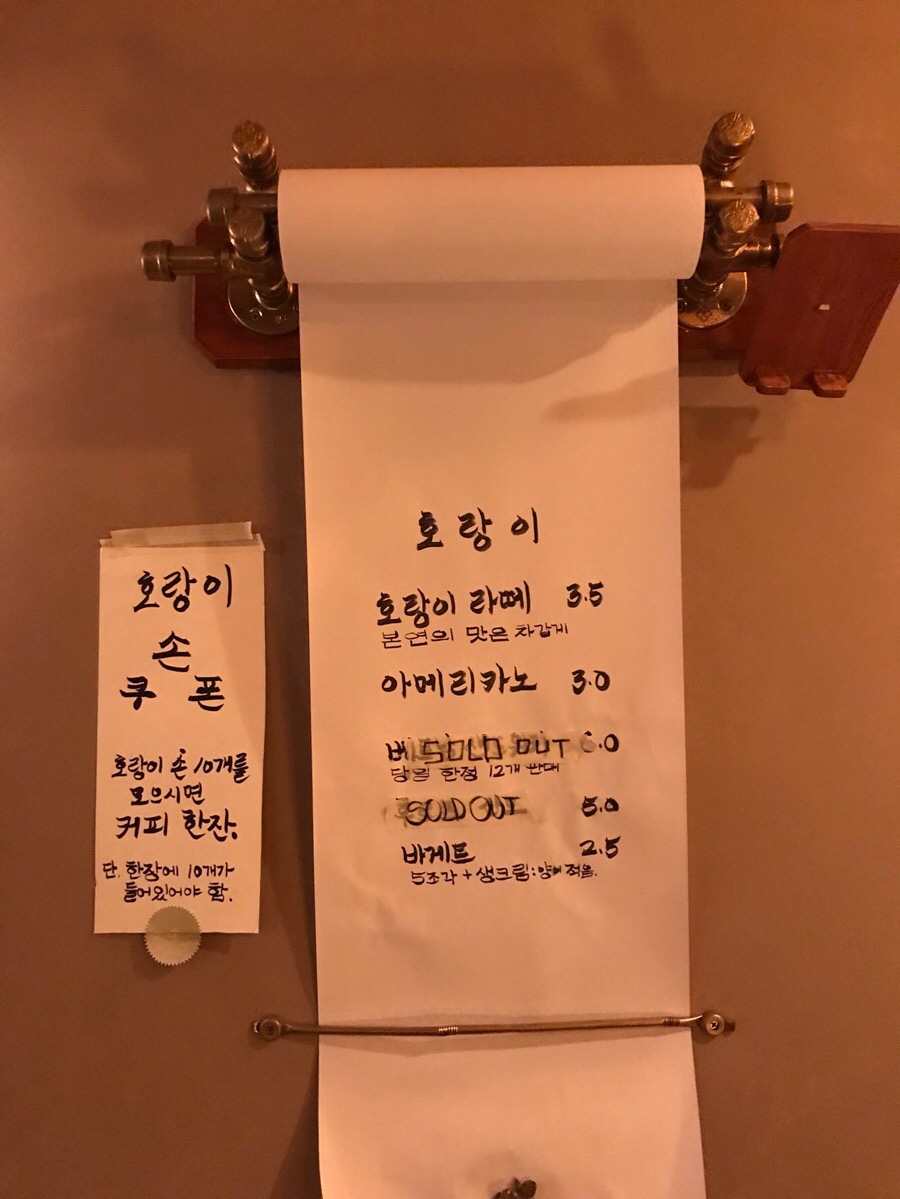 호랑이
손
쿠 폰
호랑이 손 10개를
모으시면
커피 한잔.
단. 한장에 10개가
들어있어야 함.
호랑이
호랑이 라떼 3.5
본연의 맛은 차갑게
아메리카노 3.0
SOLD OUT 6.0
당일 한정 12개 판매
SOLD OUT 5.0
바게트 2.5
5조각 + 생크림:양이 적음.